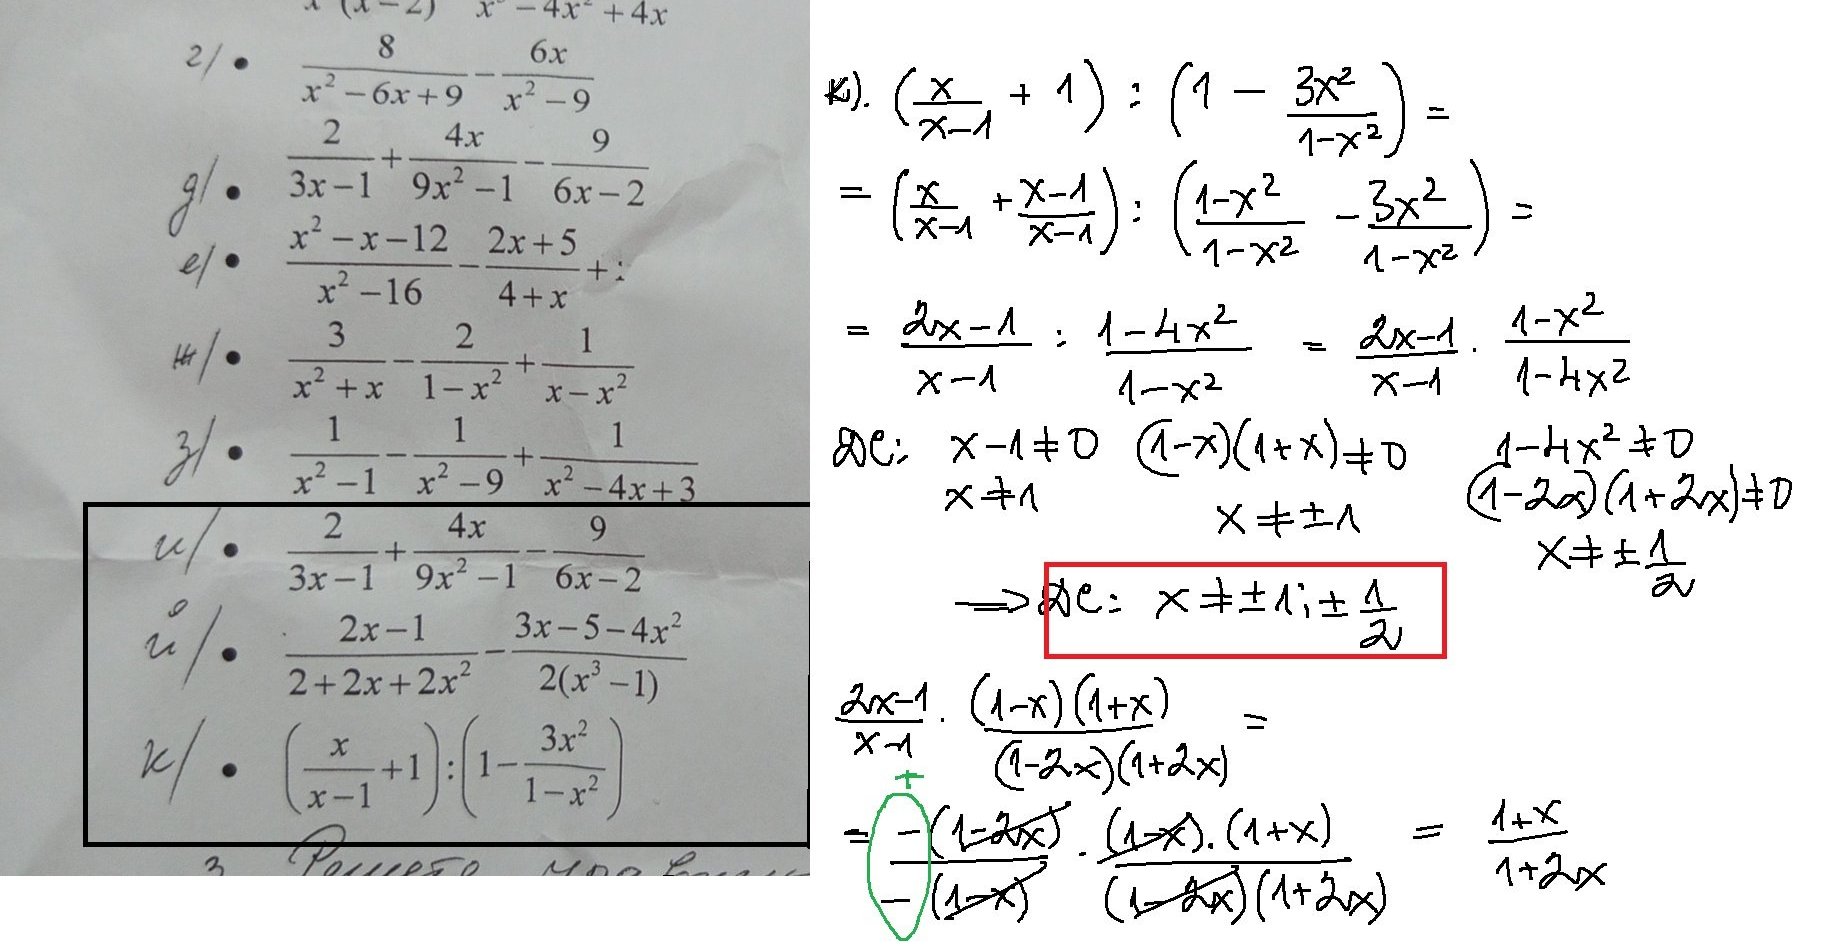 x (x−2) x³−4x²+4x
г/ • 8/(x²−6x+9) − 6x/(x²−9)
д/ • 2/(3x−1) + 4x/(9x²−1) − 9/(6x−2)
е/ • (x²−x−12)/(x²−16) − (2x+5)/(4+x) + :
ж/ • 3/(x²+x) − 2/(1−x²) + 1/(x−x²)
з/ • 1/(x²−1) − 1/(x²−9) + 1/(x²−4x+3)
и/ • 2/(3x−1) + 4x/(9x²−1) − 9/(6x−2)
й/ • (2x−1)/(2+2x+2x²) − (3x−5−4x²)/(2(x³−1))
к/ • (x/(x−1) + 1) : (1 − 3x²/(1−x²))
3 Решете
к). (x/(x−1) + 1) : (1 − 3x²/(1−x²)) =
= (x/(x−1) + (x−1)/(x−1)) : ((1−x²)/(1−x²) − 3x²/(1−x²)) =
= (2x−1)/(x−1) : (1−4x²)/(1−x²) = (2x−1)/(x−1) . (1−x²)/(1−4x²)
ДС: x−1≠0 (1−x)(1+x)≠0 1−4x²≠0
x≠1 x≠±1 (1−2x)(1+2x)≠0
x≠±1/2
⟹ ДС: x≠±1; ±1/2
(2x−1)/(x−1) . ((1−x)(1+x))/((1−2x)(1+2x)) =
+
= −(1−2x)/−(1−x) . ((1−x).(1+x))/((1−2x)(1+2x)) = (1+x)/(1+2x)